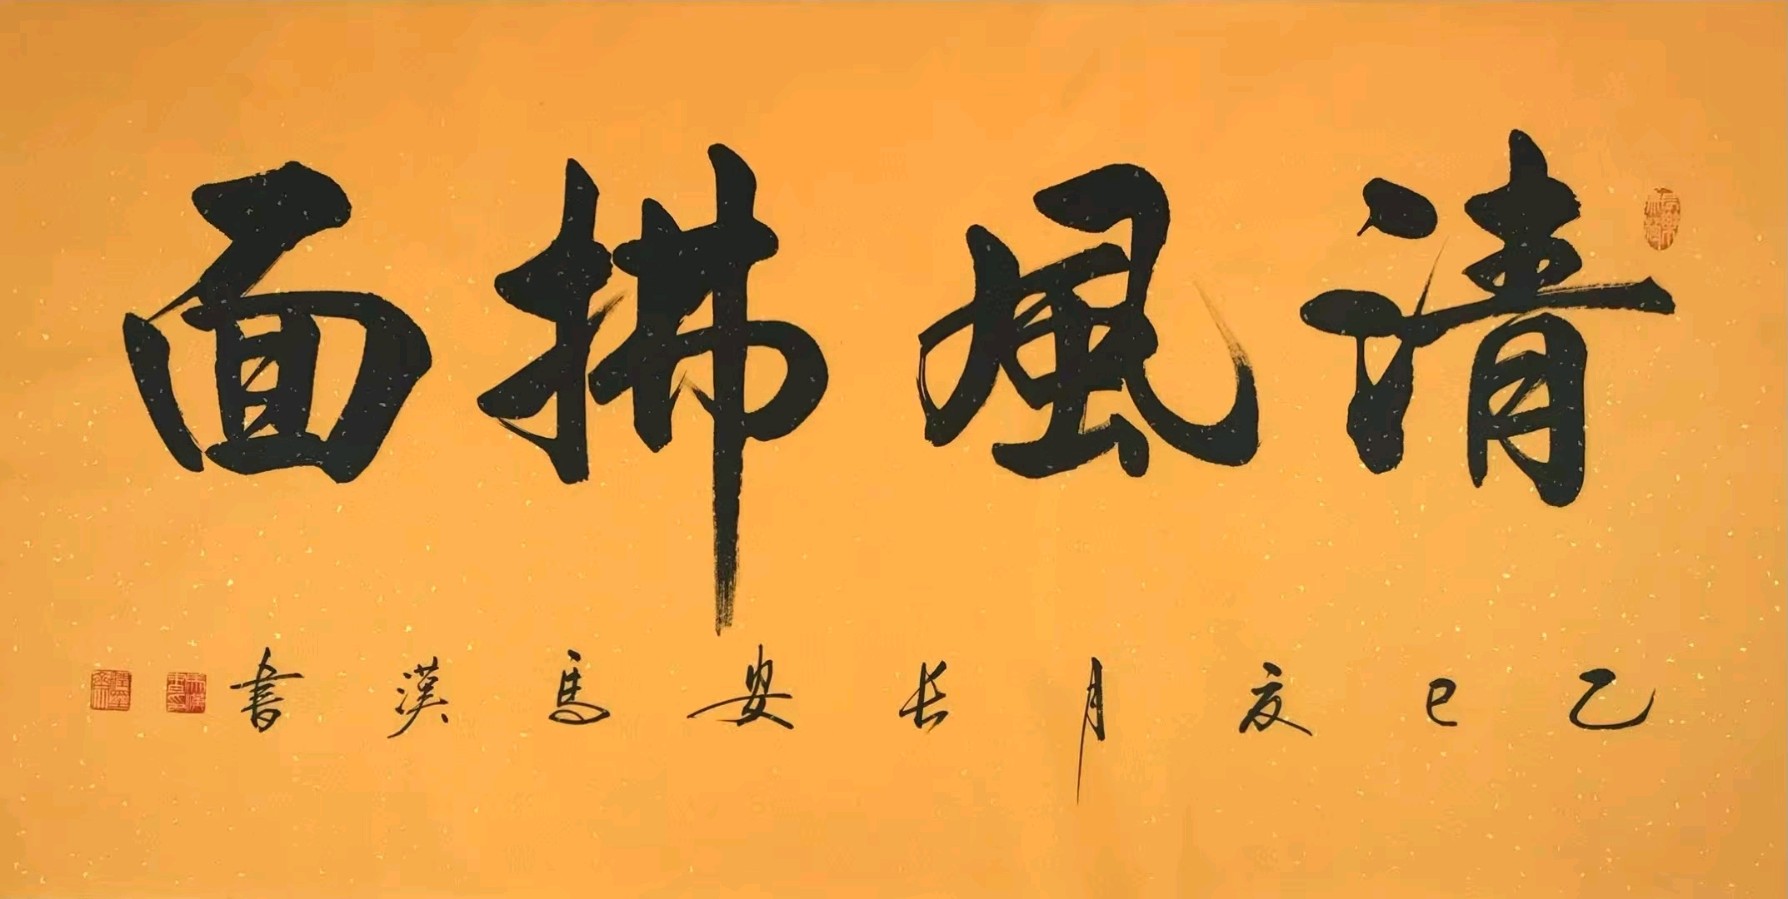 清風拂面
乙巳亥月长安馬漢書